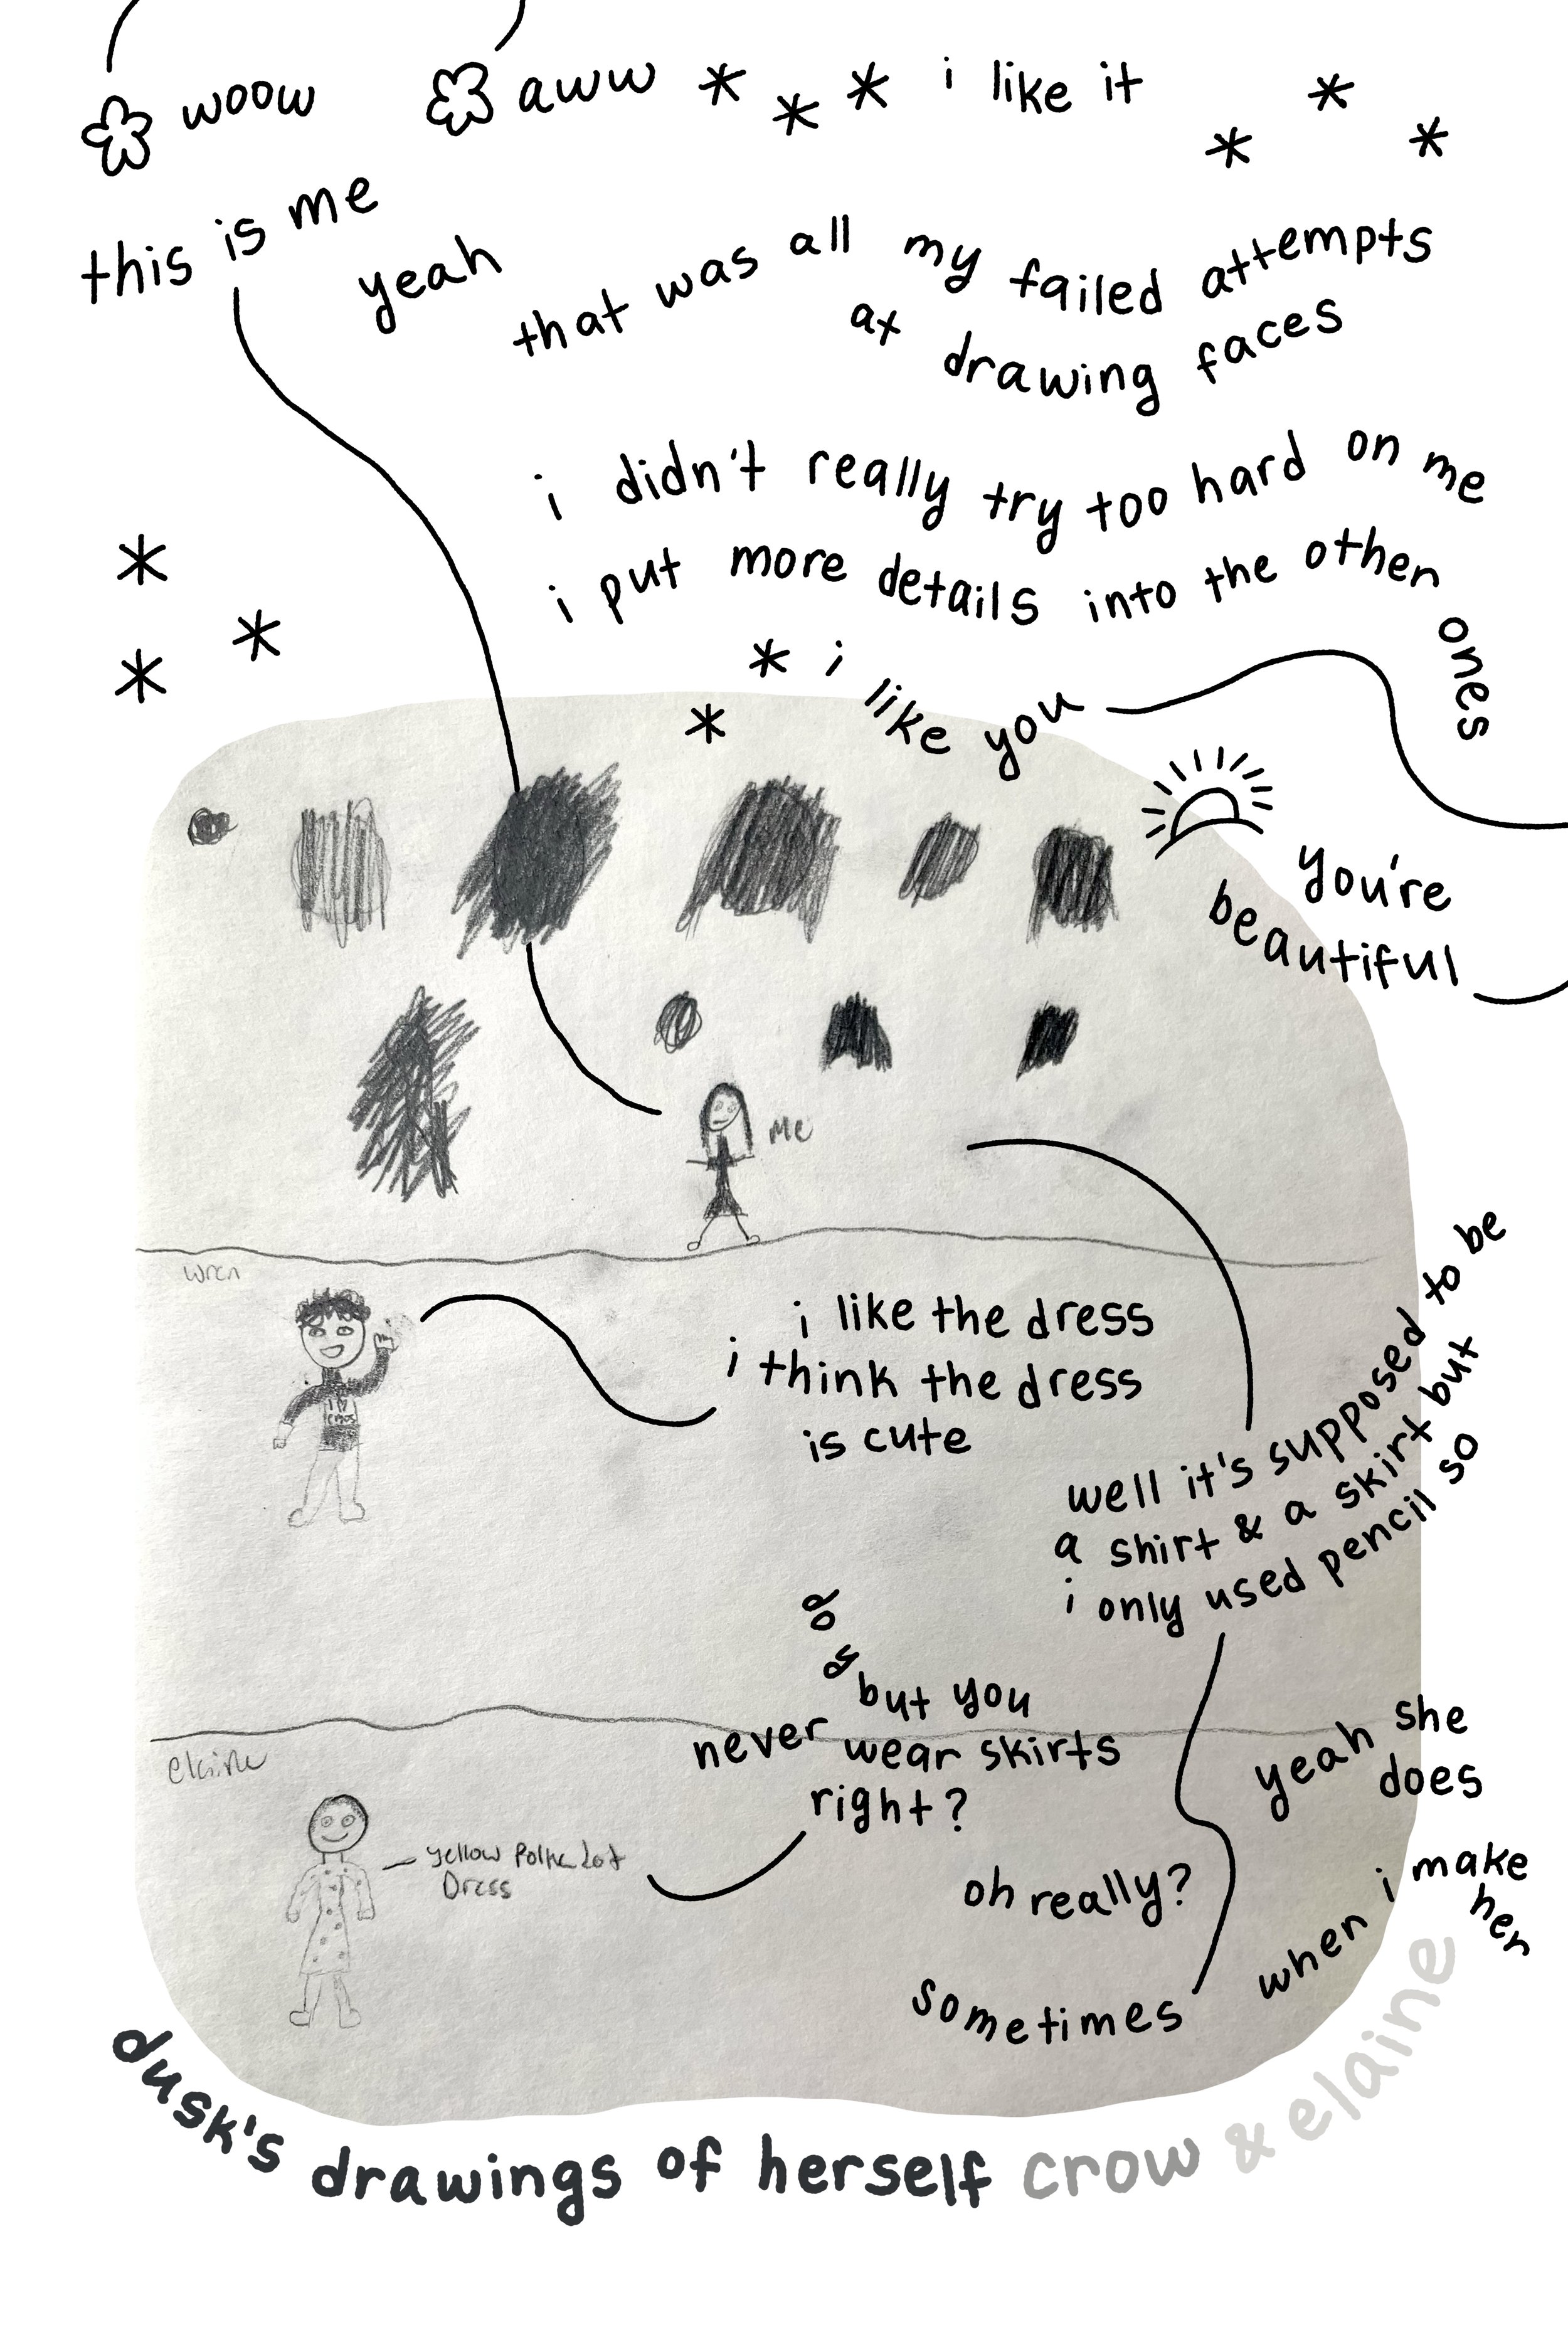 woow
aww
i like it
this is me
yeah
that was all my failed attempts
at drawing faces
i didn't really try too hard on me
i put more details into the other ones
i like you
you're
beautiful
me
wren
i like the dress
i think the dress
is cute
well it's supposed to be
a shirt & a skirt but
i only used pencil so
but you
never wear skirts
right?
elaine
yellow Polka dot
Dress
yeah she
does
oh really?
when i make her
sometimes
dusk's drawings of herself crow & elaine